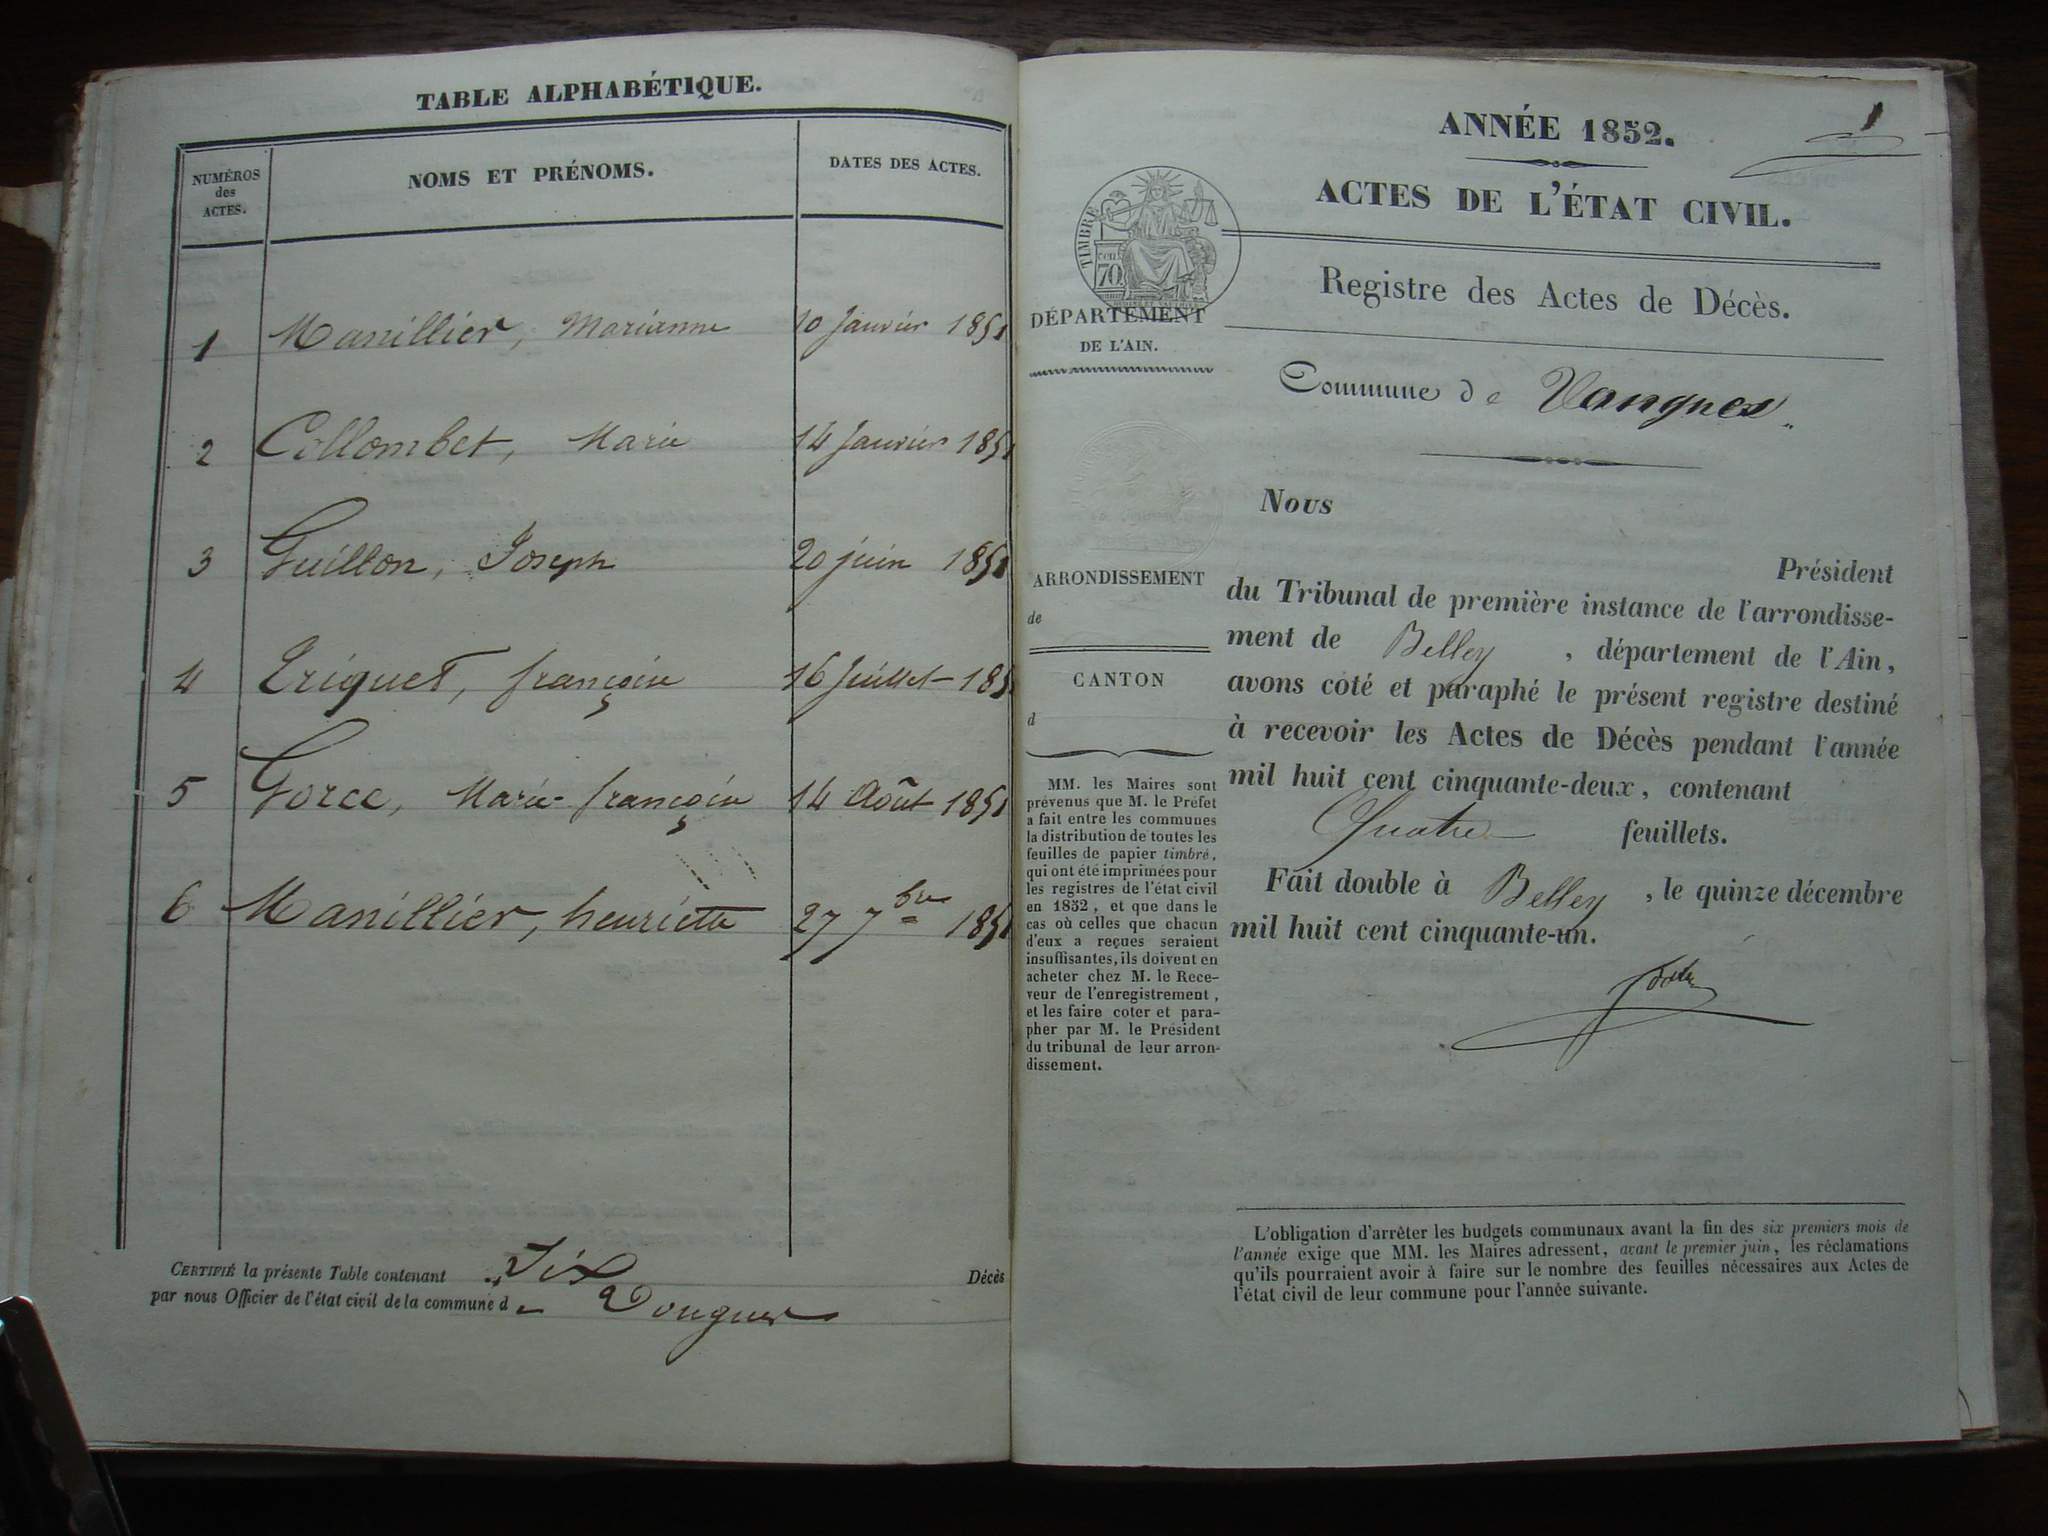 TABLE ALPHABÉTIQUE.
NUMÉROS des ACTES. NOMS ET PRÉNOMS. DATES DES ACTES.
1 Manillier, Marianne 10 Janvier 1851
2 Collombet, Marie 14 Janvier 1851
3 Guillon, Joseph 20 juin 1851
4 Triquet, françoise 16 Juillet 185
5 Gorce, Marie-françoise 14 Août 1851
6 Manillier, henriette 27 7bre 1851
CERTIFIÉ la présente Table contenant Six Décès
par nous Officier de l'état civil de la commune de
1
ANNÉE 1852.
ACTES DE L'ÉTAT CIVIL.
Registre des Actes de Décès.
TIMBRE
70
DÉPARTEMENT
DE L'AIN.
Commune de
Nous
Président
du Tribunal de première instance de l'arrondisse-
ment de Belley, département de l'Ain,
avons coté et paraphé le présent registre destiné
à recevoir les Actes de Décès pendant l'année
mil huit cent cinquante-deux, contenant
Quatre feuillets.
Fait double à Belley, le quinze décembre
mil huit cent cinquante-un.
ARRONDISSEMENT
de
CANTON
d
MM. les Maires sont
prévenus que M. le Préfet
a fait entre les communes
la distribution de toutes les
feuilles de papier timbré,
qui ont été imprimées pour
les registres de l'état civil
en 1852, et que dans le
cas où celles que chacun
d'eux a reçues seraient
insuffisantes, ils doivent en
acheter chez M. le Rece-
veur de l'enregistrement,
et les faire coter et para-
pher par M. le Président
du tribunal de leur arron-
dissement.
L'obligation d'arrêter les budgets communaux avant la fin des six premiers mois de
l'année exige que MM. les Maires adressent, avant le premier juin, les réclamations
qu'ils pourraient avoir à faire sur le nombre des feuilles nécessaires aux Actes de
l'état civil de leur commune pour l'année suivante.